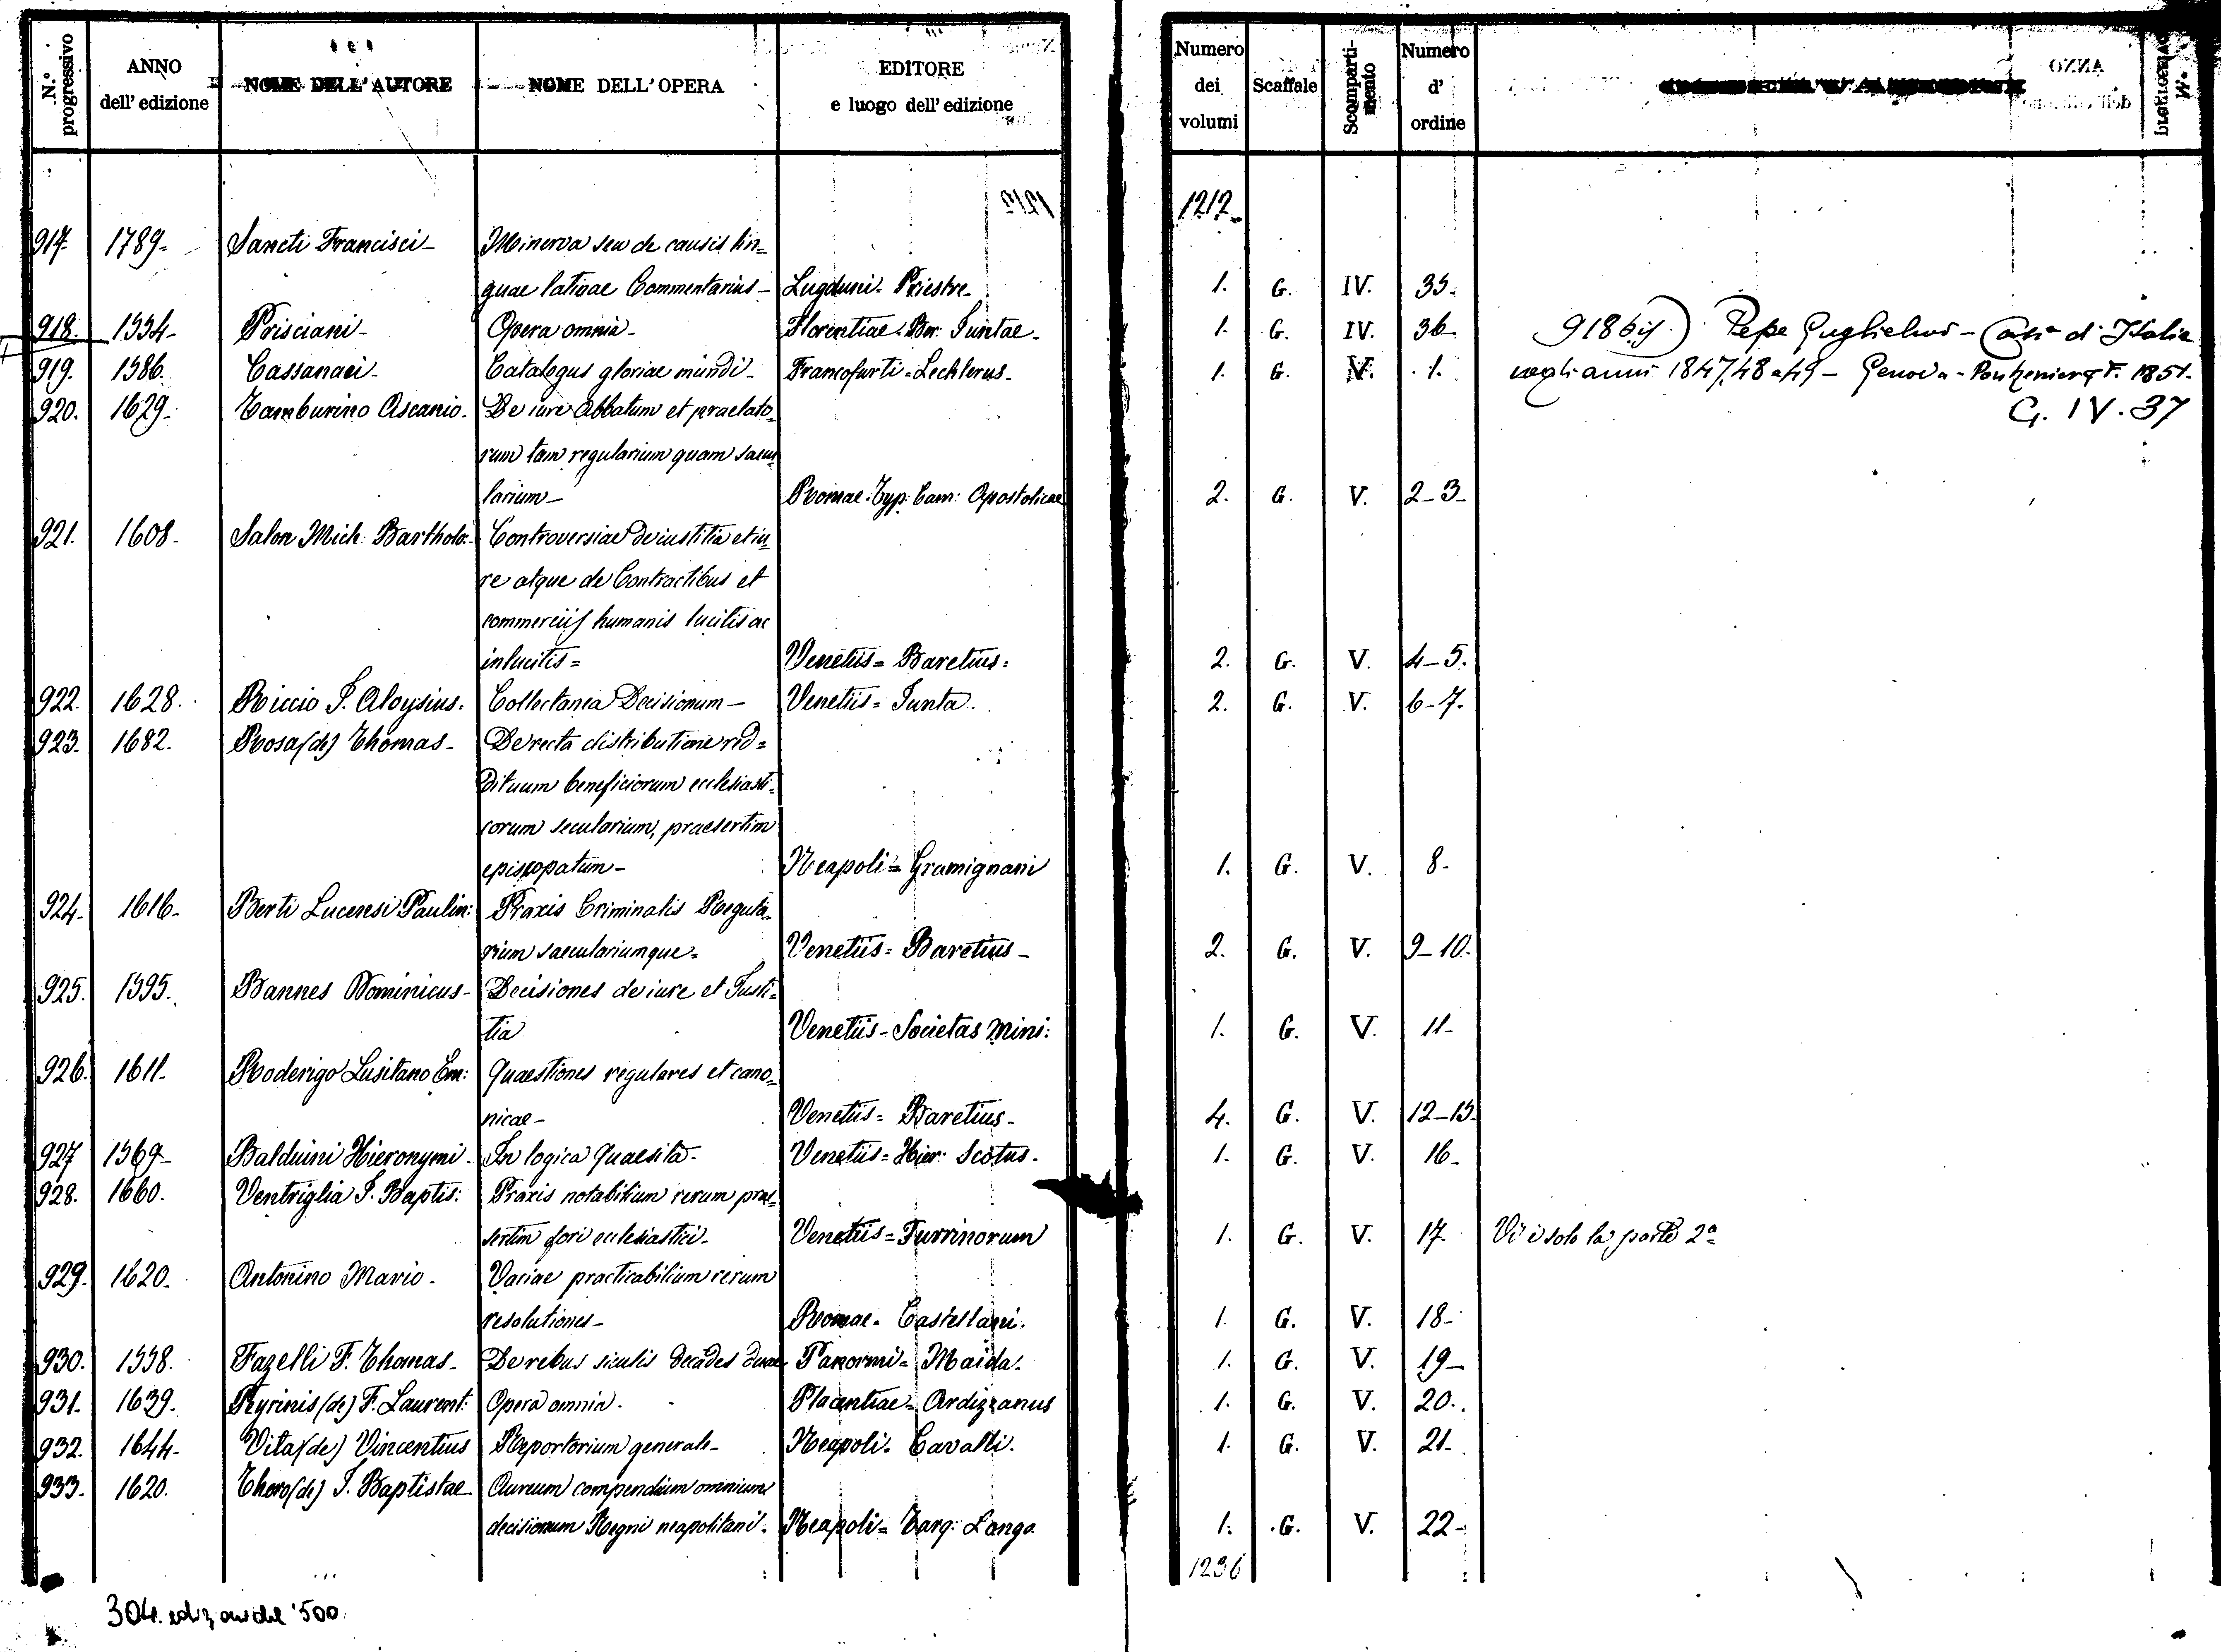 N.° progressivo ANNO dell' edizione NOME DELL' AUTORE NOME DELL' OPERA EDITORE e luogo dell' edizione Numero dei volumi Scaffale Scomparti-mento Numero d' ordine
1212
917. 1789- Sancti Francisci- Minerva seu de causis lin=
guae latinae Commentarius- Lugduni- Priestre- 1. G. IV. 35.
918. 1554- Prisciani- Opera omnia- Florentiae- Ber. Juntae- 1. G. IV. 36- 918 bis) Pepe Guglielmo - Casi d'Italia
919. 1586. Cassanaei- Catalogus gloriae mundi- Francofurti=Lechlerus- 1. G. V. 1. negli anni 1847, 48 e 49 - Genova - F. 1851.
920. 1629- Tamburino Ascanio- De iure Abbatum et praelato= G. IV. 37
rum tam regularium quam saecu
larium- Romae-Typ: Cam: Apostolicae 2. G. V. 2-3-
921. 1608- Salon Mich: Bartholo: Controversiae de iustitia et iu=
re atque de Contractibus et
commerciis humanis lucitis ac
inlucitis= Venetiis= Baretius: 2. G. V. 4-5.
922. 1628. Riccio J. Aloysius. Collectanea Decisionum- Venetiis= Junta. 2. G. V. 6-7.
923. 1682. Rosa (de) Thomas- De recta distributione red=
dituum beneficiorum ecclesiasti=
corum secularium, praesertim
episcopatum- Neapoli= Gramignani 1. G. V. 8-
924- 1616- Berti Lucensi Paulin: Praxis Criminalis Regula=
rium saeculariumque= Venetiis= Baretius- 2. G. V. 9-10.
925. 1595. Bannes Dominicus- Decisiones de iure et Justi=
tia Venetiis-Societas Mini: 1. G. V. 11-
926. 1611- Roderigo Lusitano Em: Quaestiones regulares et cano=
nicae- Venetiis= Baretius- 4. G. V. 12-15-
927 1569- Balduini Hieronymi- In logica quaesita- Venetiis= Hier: Scotus- 1. G. V. 16-
928. 1660. Ventriglia J. Baptis: Praxis notabilium rerum prae=
sertim fori ecclesiastici- Venetiis= Turrinorum 1. G. V. 17- Vi è solo la parte 2ª
929. 1620. Antonino Mario- Variae practicabilium rerum
resolutiones- Romae- Castellani. 1. G. V. 18-
930. 1558. Fazelli F. Thomas- De rebus siculis decades duae Panormi= Maida- 1. G. V. 19-
931. 1639. Peyrinis (de) F. Laurent: Opera omnia- Placentiae- Ardizzanus 1. G. V. 20.
932. 1644- Vita (de) Vincentius Repertorium generale- Neapoli- Cavalli. 1. G. V. 21-
933. 1620. Thoro (de) J. Baptistae Aureum compendium omnium
decisionum Regni neapolitani- Neapoli= Tarq: Longo 1. G. V. 22-
1236
304. edizioni del '500